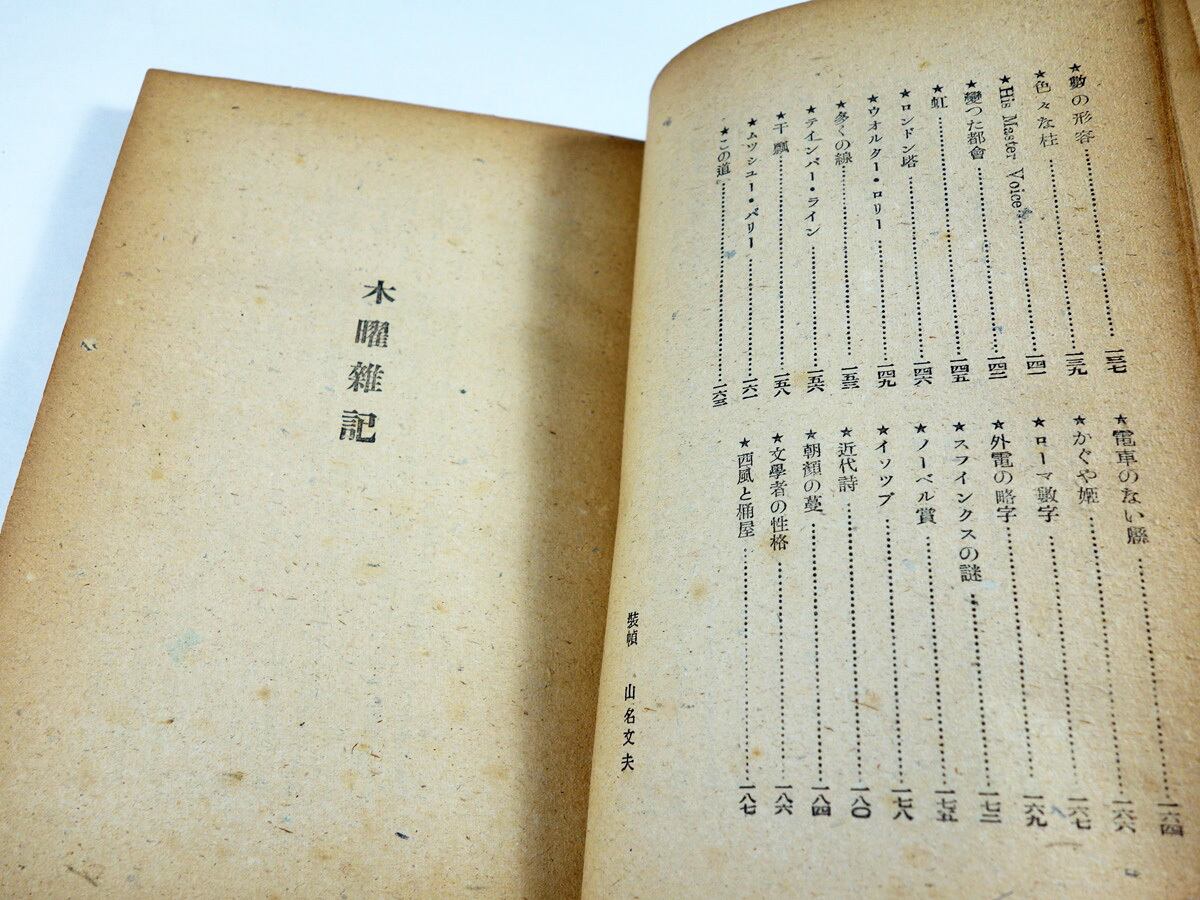 ★數の形容……一三七
★色々な柱……一三九
★His Master Voice……一四一
★變つた都會……一四二
★虹……一四五
★ロンドン塔……一四六
★ウオルター・ロリー……一四九
★多くの線……一五三
★テインバー・ライン……一五六
★干瓢……一五八
★ムツシユー・パリー……一六一
★この道……一六三
★電車のない縣……一六四
★かぐや姬……一六六
★ローマ數字……一六七
★外電の略字……一六九
★スフインクスの謎……一七三
★ノーベル賞……一七五
★イソツプ……一七八
★近代詩……一八〇
★朝顏の蔓……一八四
★文學者の性格……一八六
★西風と桶屋……一八七
裝幀 山名文夫
木曜雜記